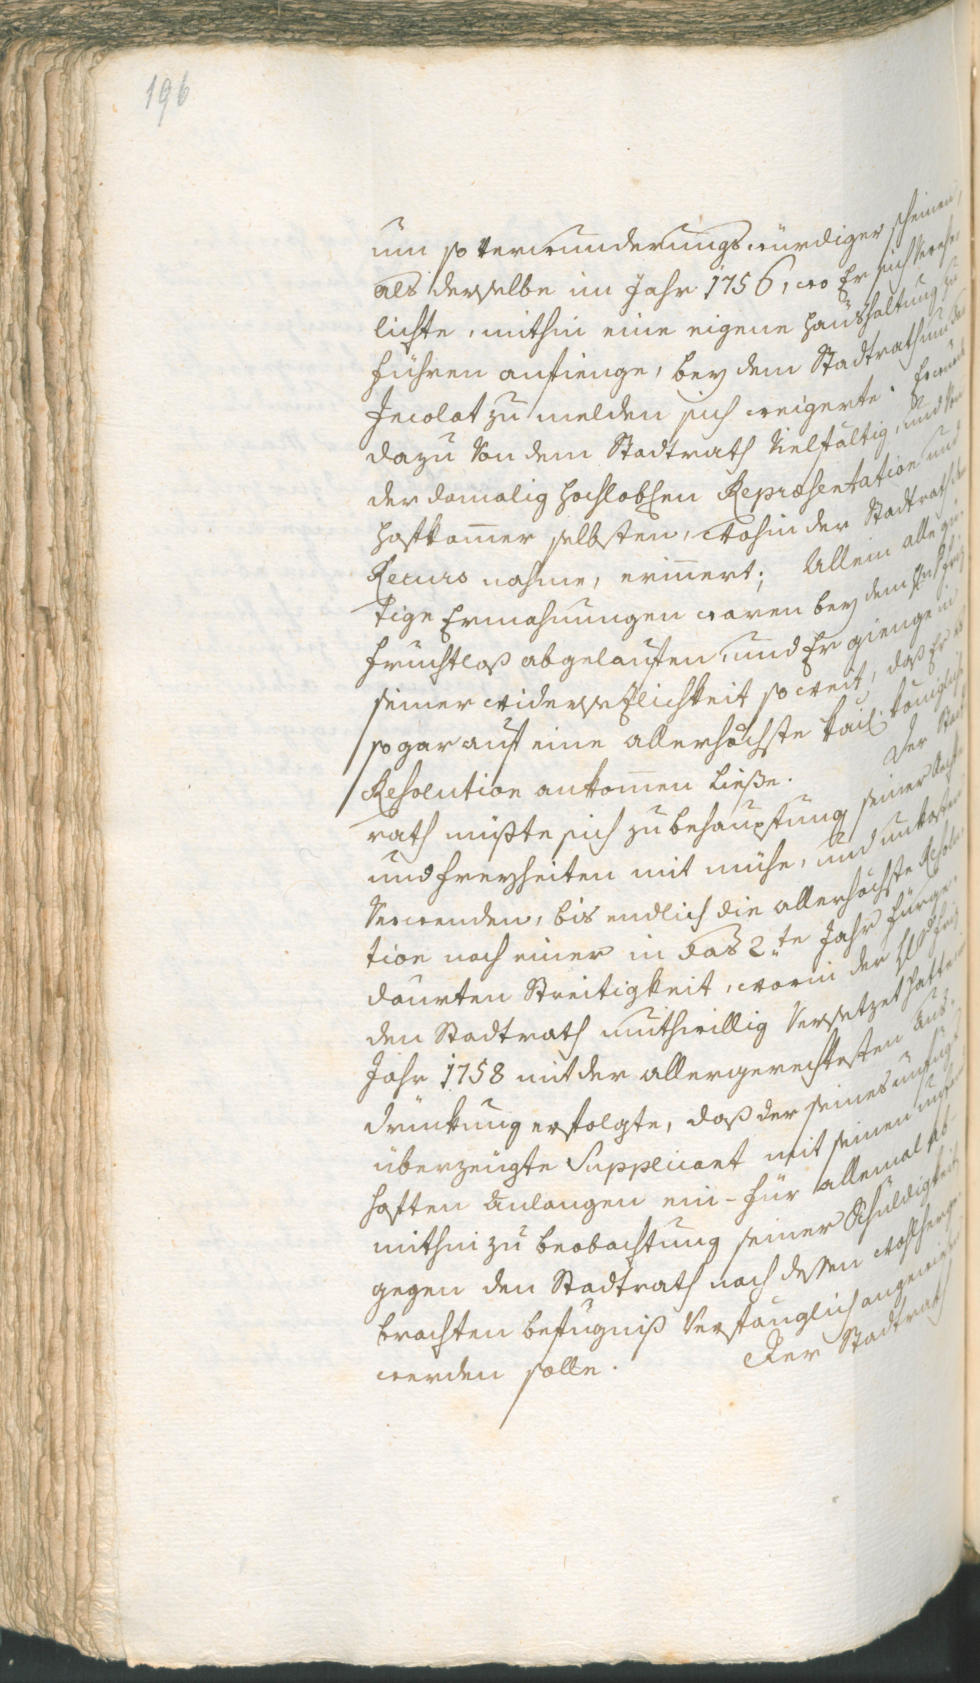 196
um so Verwunderungs würdiger scheinen,
als derselbe im Jahr 1756, wo Er sich Verehe-
lichte, mithin eine eigene Haushaltung zu
führen anfienge, bey dem Stadtrath um den
Incolat zu melden sich weigerte.
dazu Von dem Stadtrath Vielfältig, und Von
der damalig hochlobsen Repræsentation und
Hofkam̅er selbsten, Wohin der Stadtrath den
Recurs nahme, erin̅ert; Allein alle gü-
tige Ermahnungen waren bey dem
fruchtloß abgelauffen, und Er gienge in
seiner widersetzlichkeit so weit, daß Er es
so gar auf eine allerhöchste kaiß: königliche
Resolution ankom̅en ließe. Der Stadt
rath müßte sich zu behauptung seiner Rechte
und Freyheiten mit mühe, und unkosten
Verwenden, bis endlich die allerhöchste Resolu-
tion nach einer in das 2te Jahr fürge-
daurten Streitigkeit, worin der
den Stadtrath muthwillig Versetzet hatte,
Jahr 1758 mit der allergerechtesten Aus-
drückung erfolgte, daß der seines unfugs
überzeugte Supplicant mit seinem
haften Anlangen ein- für allemal ab-
mithin zu beobachtung seiner Schuldigkeit
gegen den Stadtrath nach dessen wohlherge-
brachten befugniß Verfänglich angewiesen
werden solle. Der Stadtrath